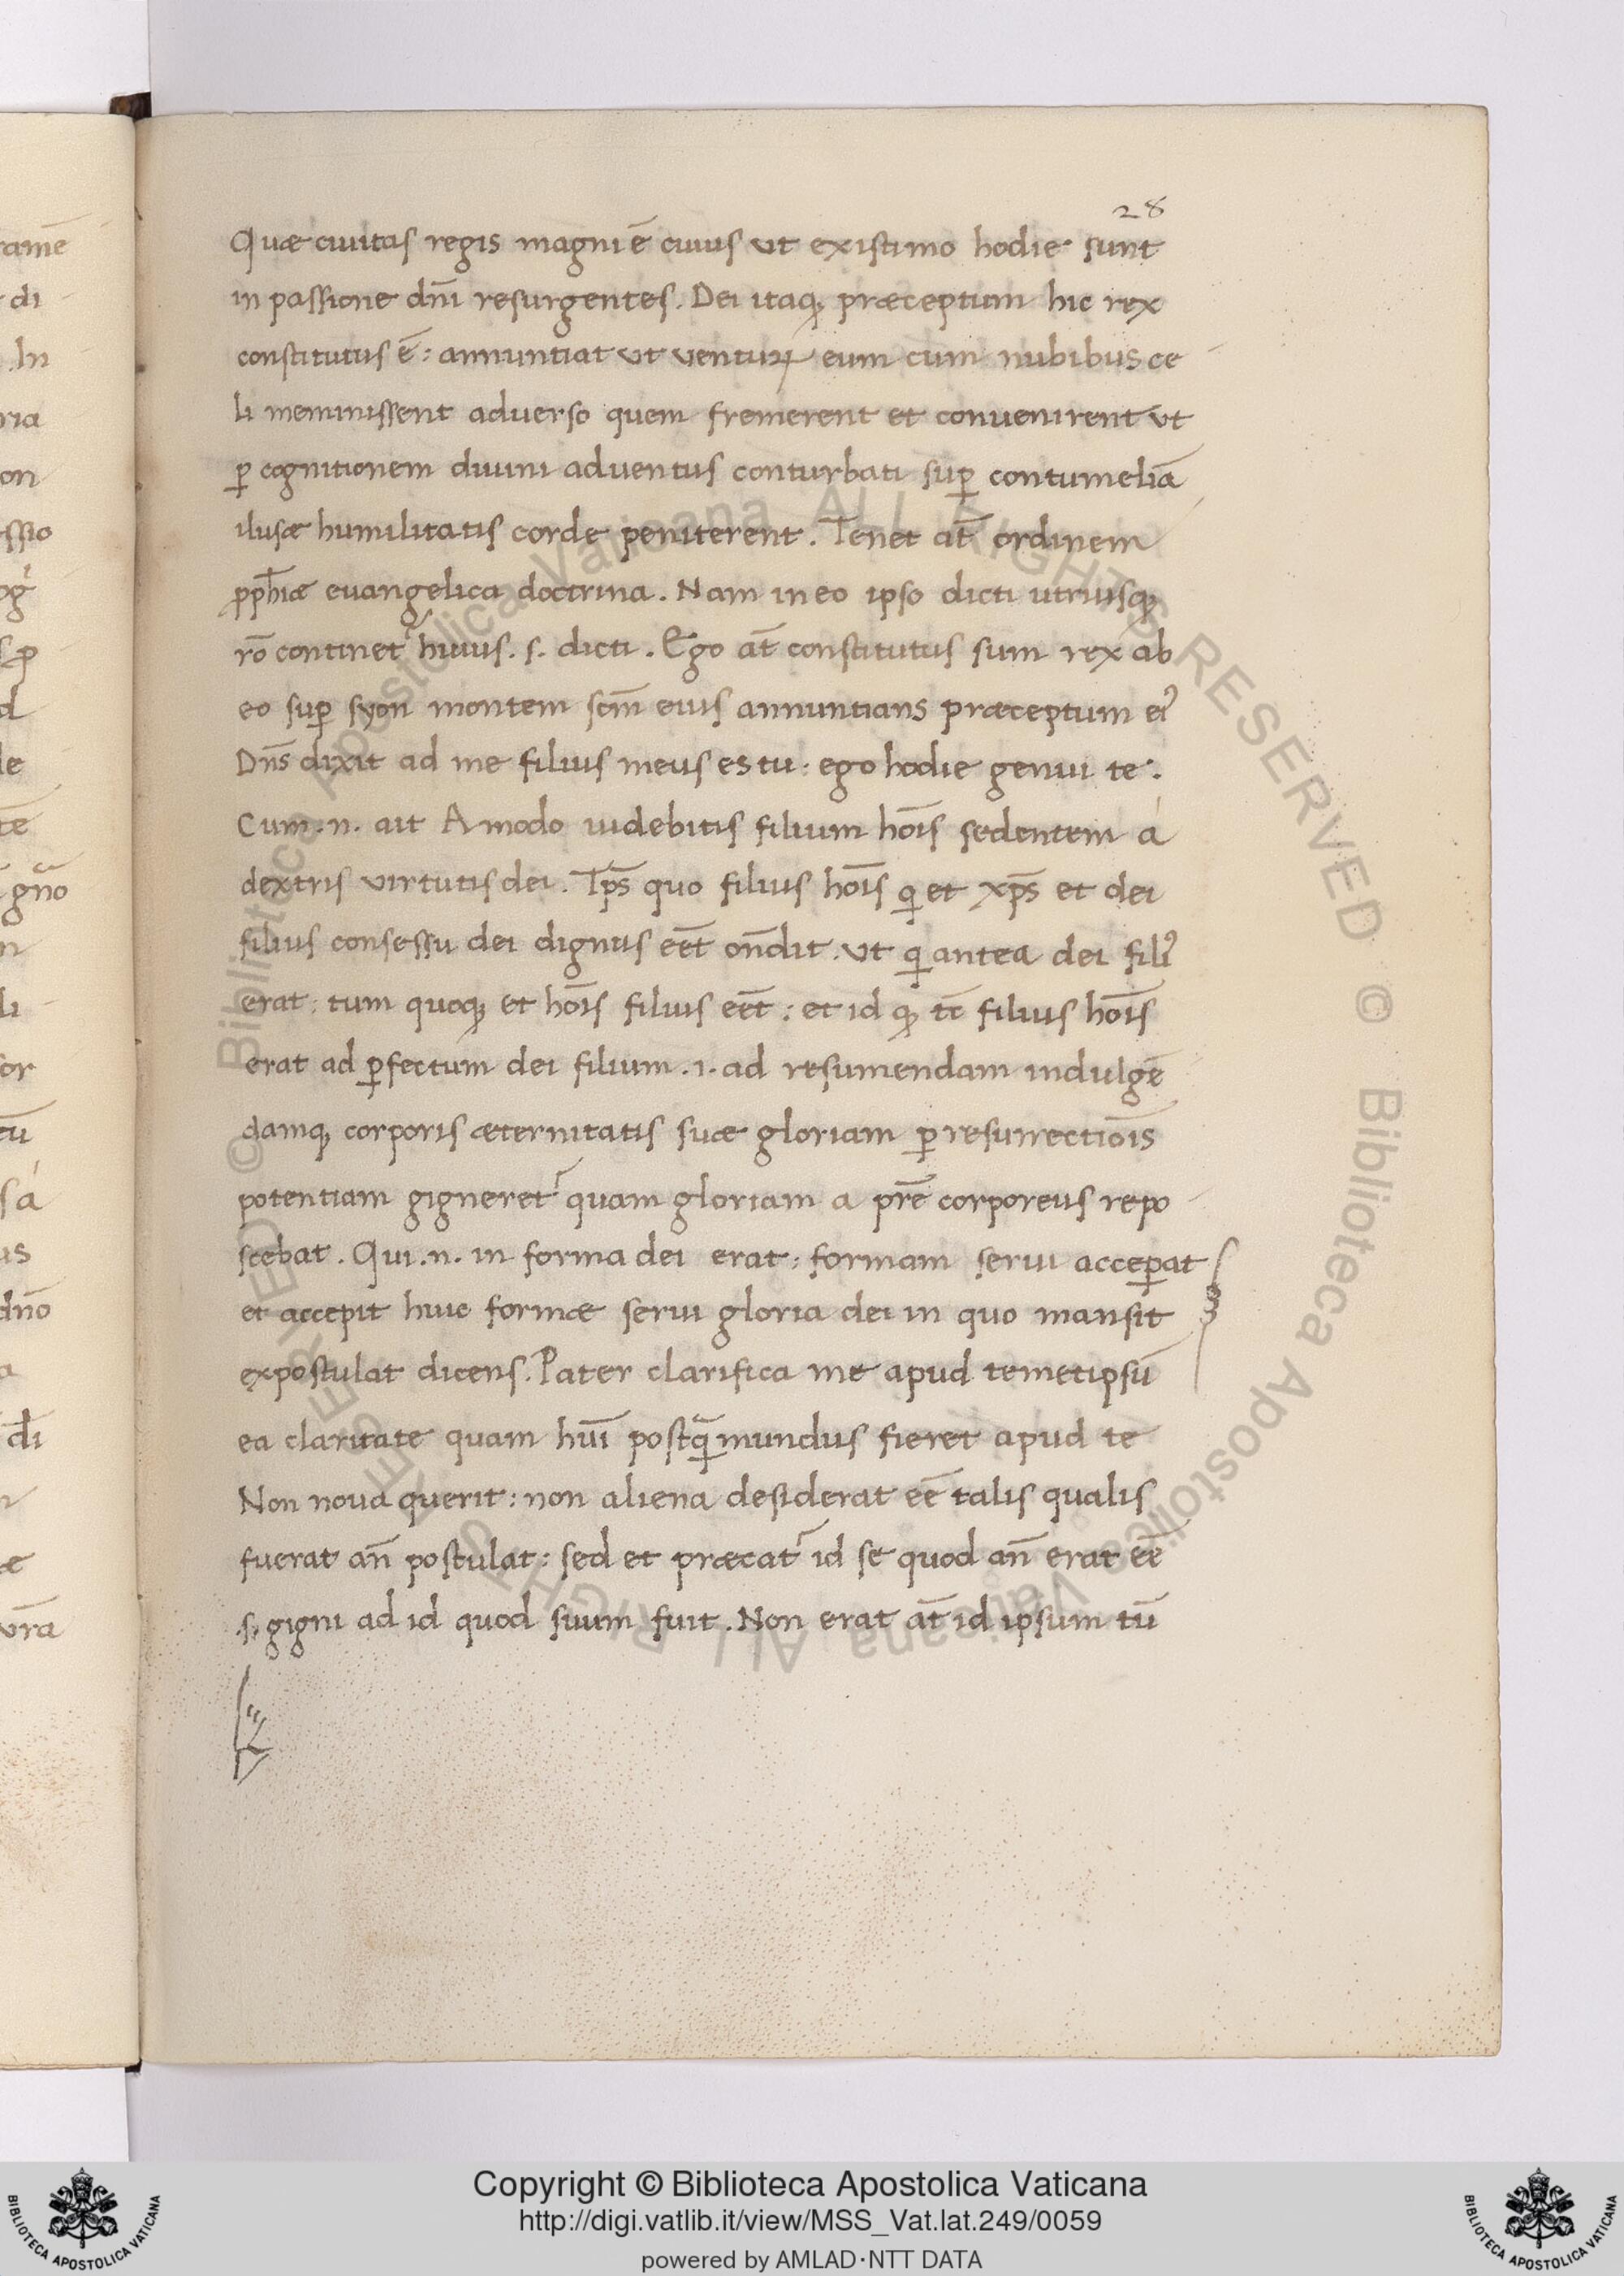 28
Quæ civitas regis magni ē cuius ut existimo hodie sunt
in passione dn̄i resurgentes. Dei itaqꝫ præceptum hic rex
constitutus ē: annuntiat ut venturꝝ eum cum nubibus ce
li meminissent adverso quem fremerent et convenirent ut
ꝑ cognitionem divini adventus conturbati suꝑ contumeliā
ilusæ humilitatis corde peniterent. Tenet at̄ ordinem
ꝓph̄iæ evangelica doctrina. Nam in eo ipso dicti utriusqꝫ
rō continet᷑ huius .s. dicti. Ego at̄ constitutus sum rex ab
eo suꝑ syon montem scm̄ eius annuntians præceptum eiꝰ
Dn̄s dixit ad me filius meus es tu: ego hodie genui te.
Cum .n. ait A modo videbitis filium hoīs sedentem á
dextris virtutis dei. Tp̄s quo filius hoīs qͥ et xp̄s et dei
filius consessu dei dignus eēt on̄dit. ut qͥ antea dei filiꝰ
erat: tum quoqꝫ et hoīs filius eēt: et id qꝫ tc̄ filius hoīs
erat ad ꝑfectum dei filium .i. ad resumendam indulgē
damqꝫ corporis æternitatis suæ gloriam ꝑ resurrectiōis
potentiam gigneret᷑ quam gloriam a pr̄e corporeus repo
scebat. Qui .n. in forma dei erat: formam servi acceꝑat
et accepit huic formæ servi gloria dei in quo mansit
expostulat dicens. Pater clarifica me apud temetipsū
ea claritate quam hūi postqͣ mundus fieret apud te
Non nova querit: non aliena desiderat eē talis qualis
fuerat an̄ postulat: sed et præcat᷑ id se quod an̄ erat eē
.s. gigni ad id quod suum fuit. Non erat at̄ id ipsum tū
Copyright © Biblioteca Apostolica Vaticana
http://digi.vatlib.it/view/MSS_Vat.lat.249/0059
powered by AMLAD·NTT DATA